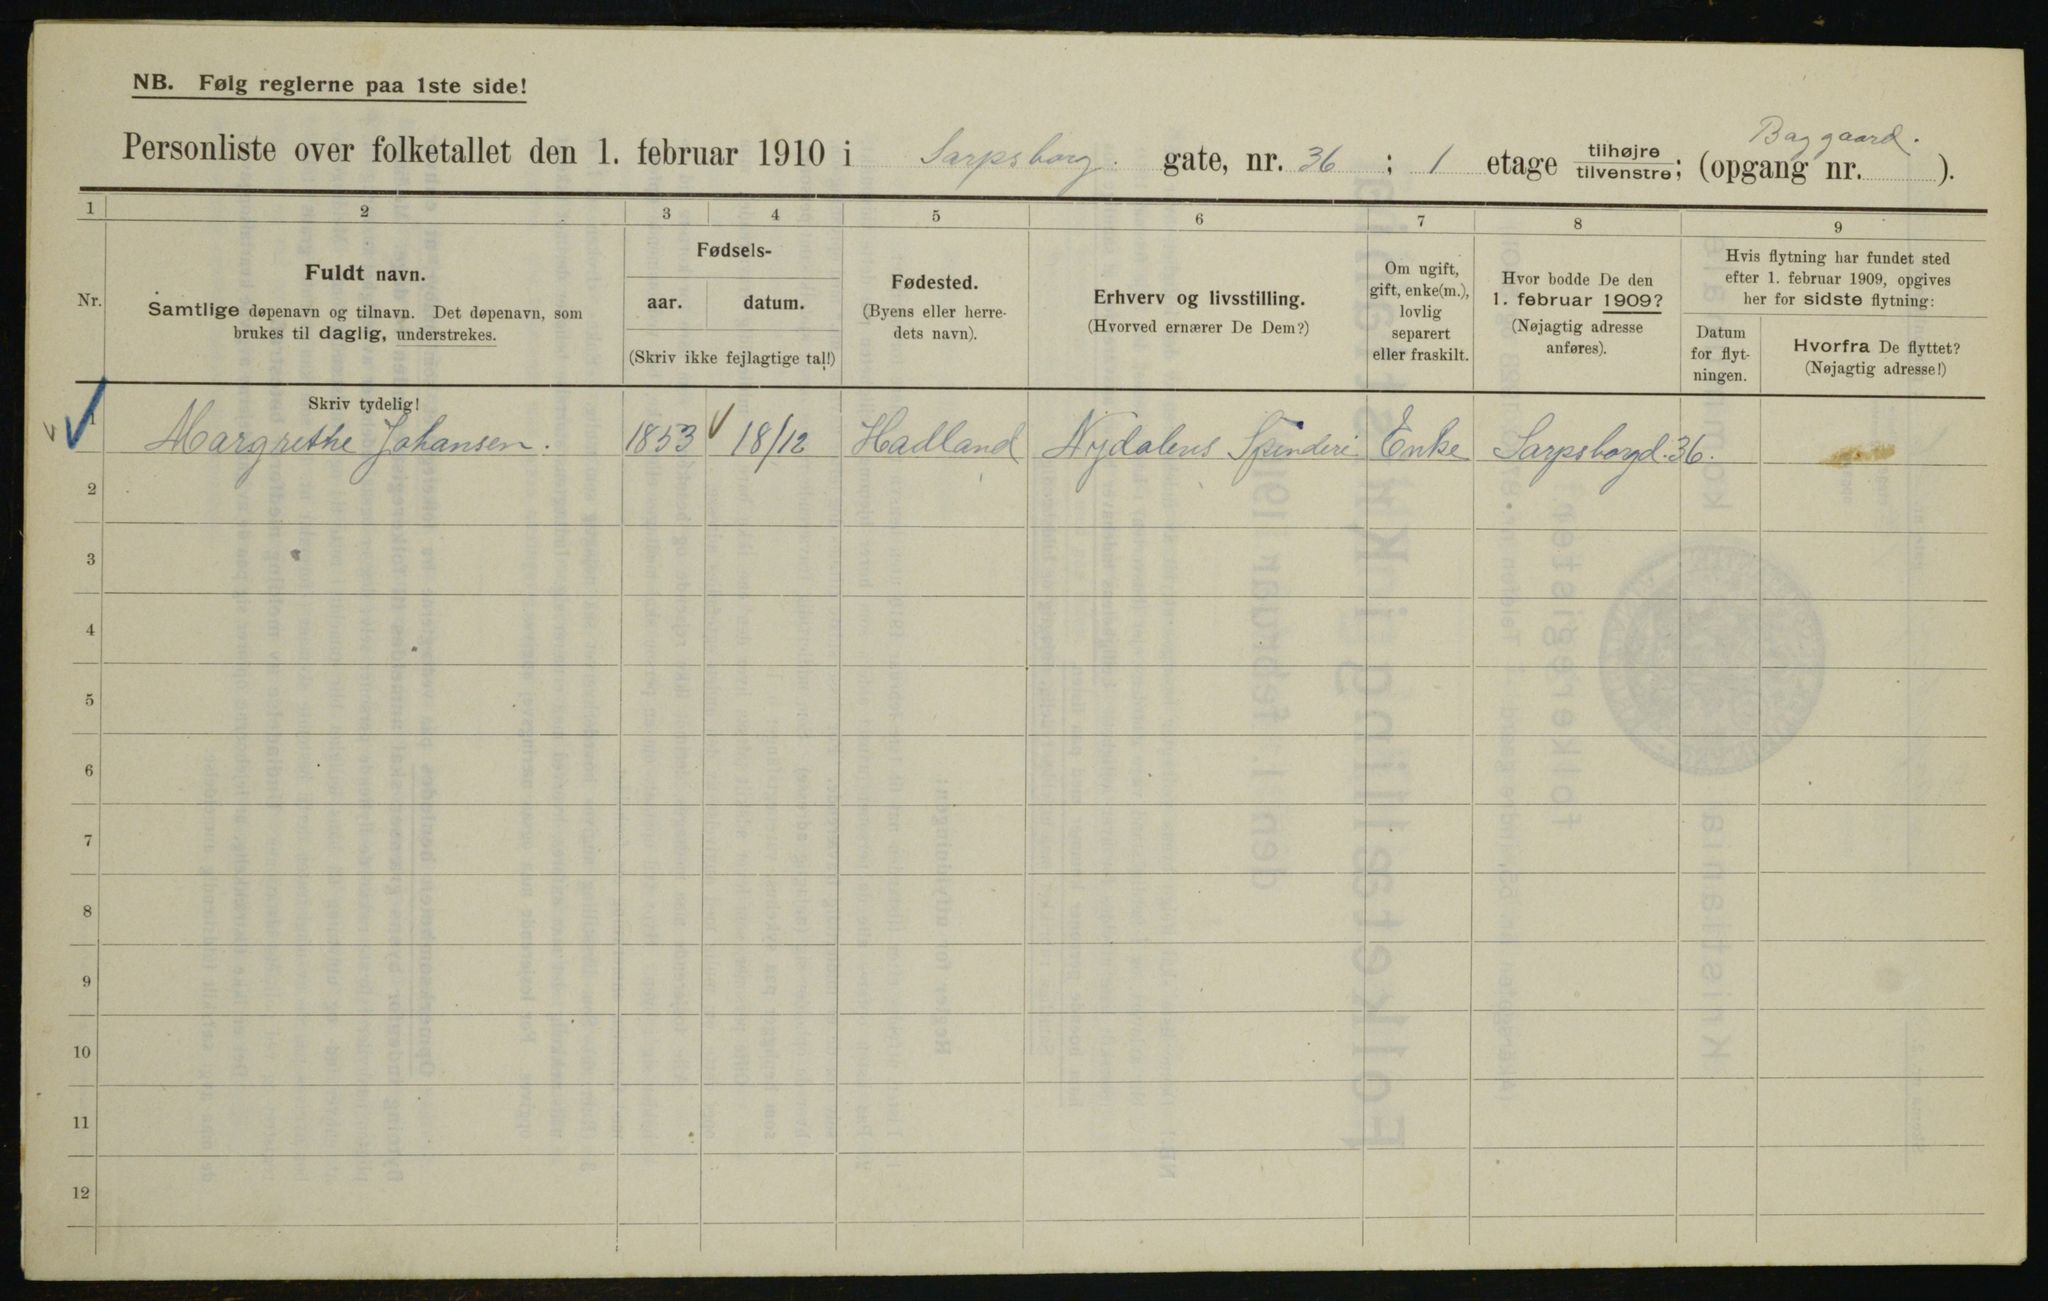 NB. Følg reglerne paa 1ste side!
Baggaard.
Personliste over folketallet den 1. februar 1910 i Sarpsborg. gate, nr. 36 ; 1 etage tilhøjre/tilvenstre; (opgang nr. ).
1 2 3 4 5 6 7 8 9
Nr.
Fuldt navn.
Samtlige døpenavn og tilnavn. Det døpenavn, som
brukes til daglig, understrekes.
Fødsels-
aar. datum.
(Skriv ikke fejlagtige tal!)
Fødested.
(Byens eller herre-
dets navn).
Erhverv og livsstilling.
(Hvorved ernærer De Dem?)
Om ugift,
gift, enke(m.),
lovlig
separert
eller fraskilt.
Hvor bodde De den
1. februar 1909?
(Nøjagtig adresse
anføres).
Hvis flytning har fundet sted
efter 1. februar 1909, opgives
her for sidste flytning:
Datum
for flyt-
ningen.
Hvorfra De flyttet?
(Nøjagtig adresse!)
Skriv tydelig!
1 Margrethe Johansen. 1853 18/12 Hadland Nydalens Spinderi Enke Sarpsborgd. 36.
2
3
4
5
6
7
8
9
10
11
12